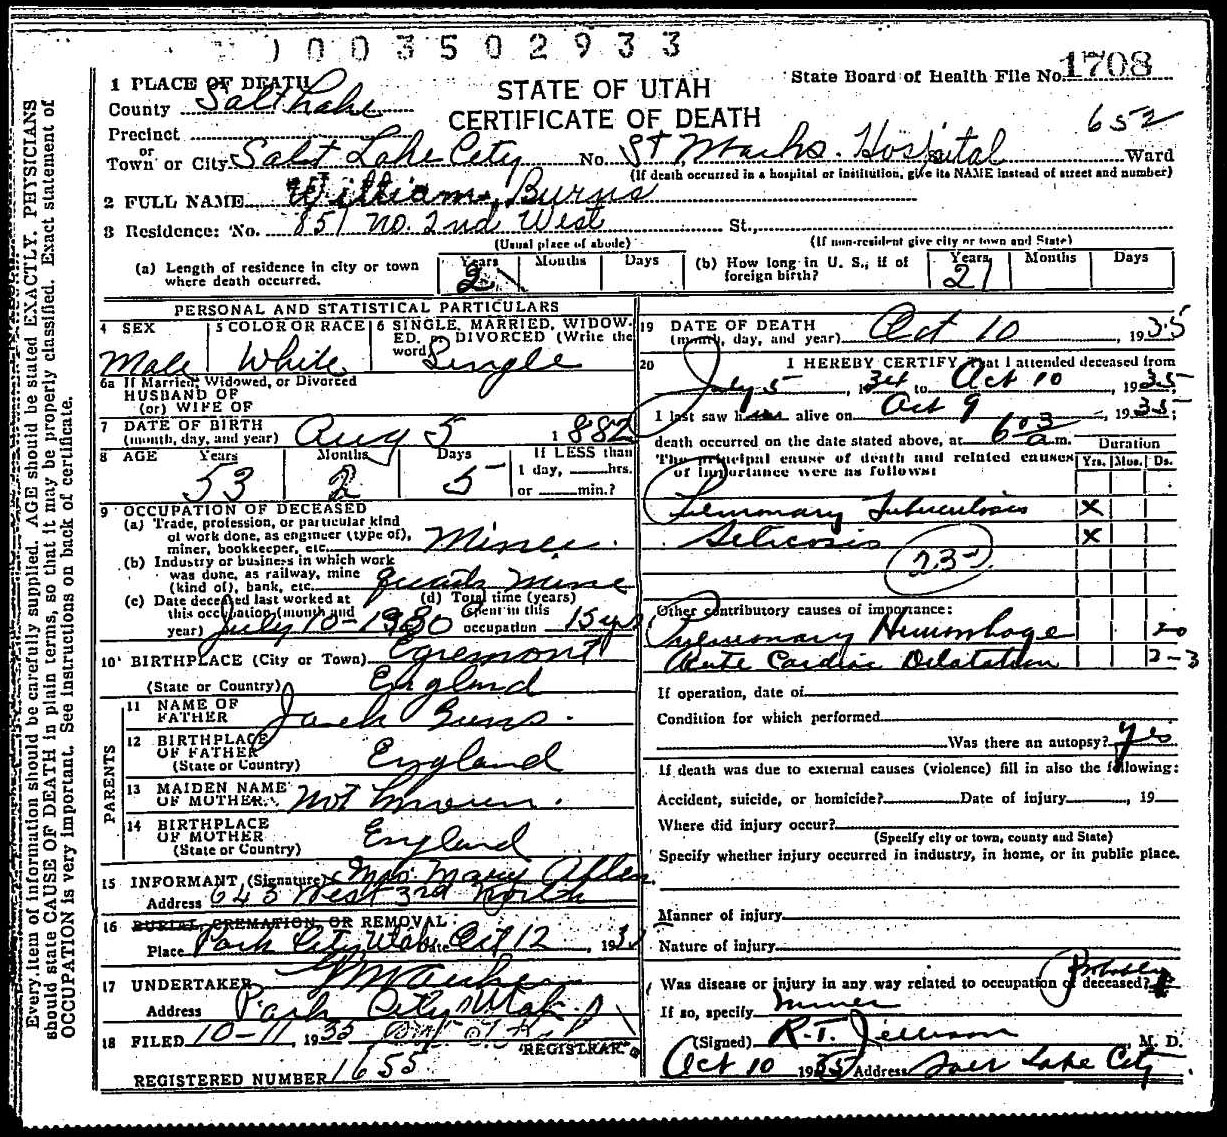 0003502933
1 PLACE OF DEATH
County Salt Lake
STATE OF UTAH
CERTIFICATE OF DEATH
State Board of Health File No. 1708
652
Precinct
or
Town or City Salt Lake City No. St Marks. Hospital Ward
(If death occurred in a hospital or institution, give its NAME instead of street and number)
2 FULL NAME William Burns
3 Residence: No. 851 No. 2nd West St.,
(Usual place of abode) (If non-resident give city or town and State)
(a) Length of residence in city or town where death occurred. Years 21 Months Days
(b) How long in U. S., if of foreign birth? Years 21 Months Days
PERSONAL AND STATISTICAL PARTICULARS
4 SEX Male
5 COLOR OR RACE White
6 SINGLE, MARRIED, WIDOWED, or DIVORCED (Write the word) Single
6a If Married, Widowed, or Divorced
HUSBAND OF
(or) WIFE OF
7 DATE OF BIRTH
(month, day, and year) Aug 5 1882
8 AGE Years 53 Months 2 Days 5 If LESS than
1 day, hrs.
or min.?
9 OCCUPATION OF DECEASED
(a) Trade, profession, or particular kind
of work done, as engineer (type of),
miner, bookkeeper, etc. Miner.
(b) Industry or business in which work
was done, as railway, mine
(kind of), bank, etc. quartz mine
(c) Date deceased last worked at
this occupation (month and
year) July 10-1930
(d) Total time (years)
spent in this
occupation 15 yrs
10 BIRTHPLACE (City or Town) Egremont
(State or Country) England
PARENTS
11 NAME OF
FATHER Jack Burns.
12 BIRTHPLACE
OF FATHER
(State or Country) England
13 MAIDEN NAME
OF MOTHER Not known.
14 BIRTHPLACE
OF MOTHER
(State or Country) England
15 INFORMANT (Signature) Mrs. Mary Allen
Address 643 West 3rd North
16 BURIAL, CREMATION, OR REMOVAL
Place Park City Utah Date Oct 12, 1935
17 UNDERTAKER
Address Park City Utah
18 FILED 10-11, 1935
REGISTRAR
REGISTERED NUMBER 1655
19 DATE OF DEATH
(month, day, and year) Oct 10, 1935
20 I HEREBY CERTIFY That I attended deceased from
July 5, 1934 to Oct 10, 1935
I last saw him alive on Oct 9, 1935;
death occurred on the date stated above, at 6 03 a m.
The principal cause of death and related causes
of importance were as follows:
Duration
Yrs. Mos. Ds.
Pulmonary Tuberculosis X
Silicosis X
23-
Other contributory causes of importance:
Pulmonary Hemorrhage
Acute Cardiac Dilatation 2-3
If operation, date of
Condition for which performed
Was there an autopsy? yes
If death was due to external causes (violence) fill in also the following:
Accident, suicide, or homicide? Date of injury, 19
Where did injury occur?
(Specify city or town, county and State)
Specify whether injury occurred in industry, in home, or in public place.
Manner of injury
Nature of injury
Was disease or injury in any way related to occupation of deceased? Probably
If so, specify Miner
(Signed) R. T. Jellison, M. D.
Oct 10 1935 Address Salt Lake City
Every item of information should be carefully supplied. AGE should be stated EXACTLY. PHYSICIANS
should state CAUSE OF DEATH in plain terms, so that it may be properly classified. Exact statement of
OCCUPATION is very important. See instructions on back of certificate.